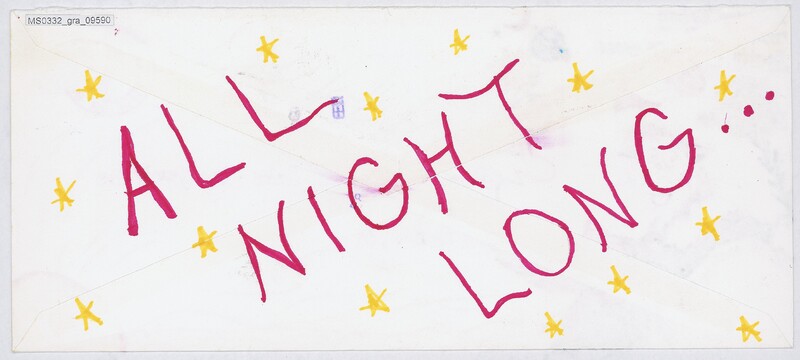 MS0332_gra_09590
ALL
NIGHT
LONG...